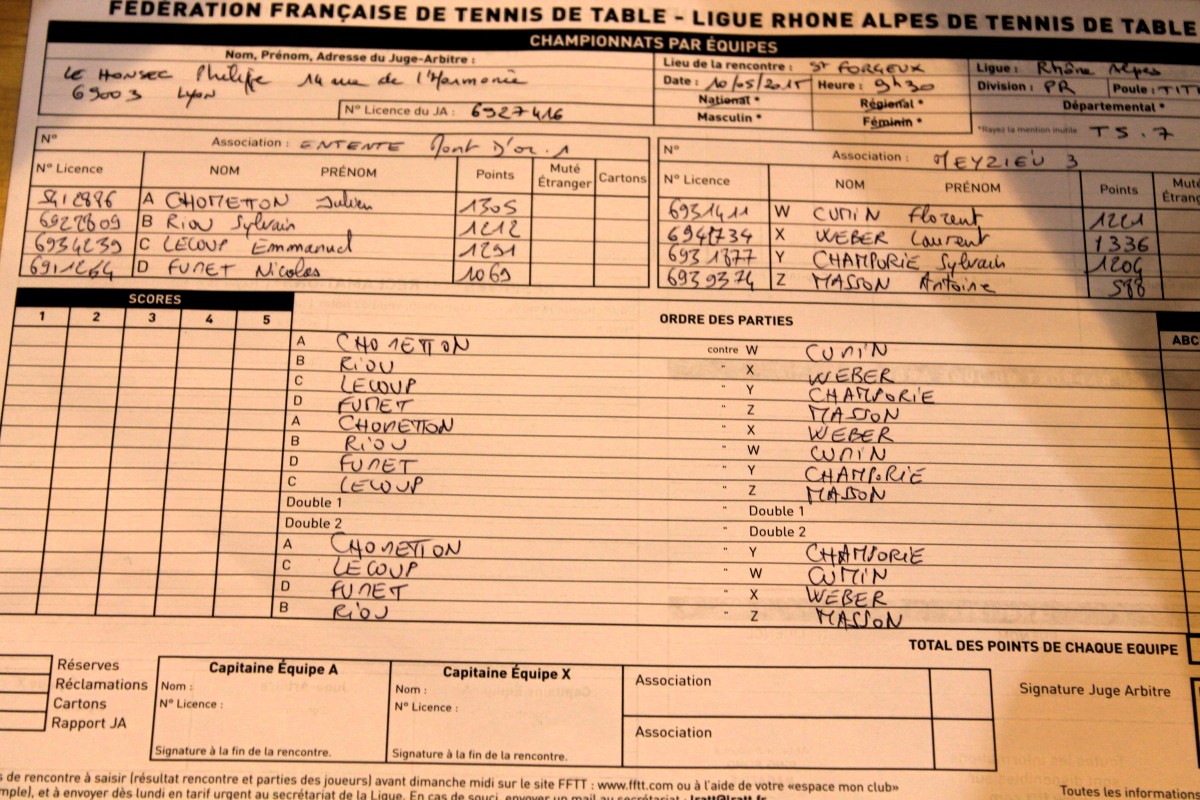 FÉDÉRATION FRANÇAISE DE TENNIS DE TABLE - LIGUE RHONE ALPES DE TENNIS DE TABLE
CHAMPIONNATS PAR ÉQUIPES
Nom, Prénom, Adresse du Juge-Arbitre :
LE HONSEC Philippe 14 rue de l'Harmonie
69003 Lyon
N° Licence du JA : 6927416
Lieu de la rencontre : ST FORGEUX
Date : 10/05/2015 Heure : 9h30
National * Régional *
Masculin * Féminin *
Ligue : Rhône Alpes
Division : PR Poule : TIT
Départemental *
*Rayez la mention inutile TS.7
N° Association : ENTENTE Mont D'or. 1
N° Licence NOM PRÉNOM Points Muté Étranger Cartons
5412886 A CHOMETTON Julien 1305
6927809 B RIOU Sylvain 1212
6934239 C LECOUP Emmanuel 1291
6911264 D FUMET Nicolas 1069
N° Association : MEYZIEU 3
N° Licence NOM PRÉNOM Points Muté
6931411 W CUMIN Florent 1221
X WEBER Laurent 1336
6931877 Y CHAMPORIE Sylvain 1206
6939374 Z MASSON Antoine 588
SCORES
1 2 3 4 5
ORDRE DES PARTIES
ABC
A CHOMETTON contre W CUMIN
B RIOU " X WEBER
C LECOUP " Y CHAMPORIE
D FUMET " Z MASSON
A CHOMETTON " X WEBER
B RIOU " W CUMIN
D FUMET " Y CHAMPORIE
C LECOUP " Z MASSON
Double 1 " Double 1
Double 2 " Double 2
A CHOMETTON " Y CHAMPORIE
C LECOUP " W CUMIN
D FUMET " X WEBER
B RIOU " Z MASSON
TOTAL DES POINTS DE CHAQUE EQUIPE
Réserves
Réclamations
Cartons
Rapport JA
Capitaine Équipe A
Nom :
N° Licence :
Signature à la fin de la rencontre.
Capitaine Équipe X
Nom :
N° Licence :
Signature à la fin de la rencontre.
Association
Association
Signature Juge Arbitre
s de rencontre à saisir (résultat rencontre et parties des joueurs) avant dimanche midi sur le site FFTT : www.fftt.com ou à l'aide de votre «espace mon club»
mple), et à envoyer dès lundi en tarif urgent au secrétariat de la Ligue. En cas de souci, envoyer un mail au secrétariat :
Toutes les informations